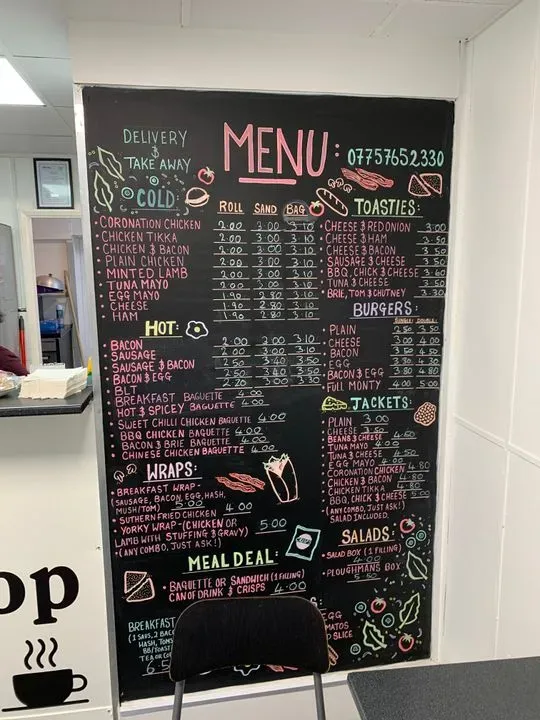 DELIVERY
&
TAKE AWAY
MENU:
07757652330
COLD:
ROLL SAND BAG
CORONATION CHICKEN 2.00 3.00 3.10
CHICKEN TIKKA 2.00 3.00 3.10
CHICKEN & BACON 2.00 3.00 3.10
PLAIN CHICKEN 2.00 3.00 3.10
MINTED LAMB 2.00 3.00 3.10
TUNA MAYO 2.00 3.00 3.10
EGG MAYO 1.90 2.80 3.10
CHEESE 1.90 2.80 3.10
HAM 1.90 2.80 3.10
HOT:
BACON 2.00 2.00 3.10
SAUSAGE 2.00 3.00 3.10
SAUSAGE & BACON 2.50 3.40 3.50
BACON & EGG 2.50 3.40 3.50
BLT 2.20 3.00 3.30
BREAKFAST BAGUETTE 4.00
HOT & SPICEY BAGUETTE 4.00
SWEET CHILLI CHICKEN BAGUETTE 4.00
BBQ CHICKEN BAGUETTE 4.00
BACON & BRIE BAGUETTE 4.00
CHINESE CHICKEN BAGUETTE 4.00
WRAPS:
BREAKFAST WRAP -
(SAUSAGE, BACON, EGG, HASH,
MUSH/TOM) 5.00
SUTHERN FRIED CHICKEN 4.00
YORKY WRAP - (CHICKEN OR 5.00
LAMB WITH STUFFING & GRAVY)
(ANY COMBO, JUST ASK!)
MEAL DEAL:
BAGUETTE OR SANDWICH (1 FILLING)
CAN OF DRINK & CRISPS 4.00
BREAKFAST
(1 SAUS, 2 BAC
HASH, TOM
BB/TOAST
TEA OR CO
6.5
S:
EGG
MATOS
D SLICE
TOASTIES:
CHEESE & RED ONION 3.00
CHEESE & HAM 3.50
CHEESE & BACON 3.50
SAUSAGE & CHEESE 3.50
BBQ, CHICK & CHEESE 3.60
TUNA & CHEESE 3.50
BRIE, TOM & CHUTNEY 3.30
BURGERS:
SINGLE: DOUBLE:
PLAIN 2.50 3.50
CHEESE 3.00 4.00
BACON 3.50 4.50
EGG 3.30 4.30
BACON & EGG 3.80 4.80
FULL MONTY 4.00 5.00
JACKETS:
PLAIN 3.00
CHEESE 3.80
BEANS & CHEESE 4.60
TUNA MAYO 4.00
TUNA & CHEESE 4.50
EGG MAYO 4.00
CORONATION CHICKEN 4.80
CHICKEN & BACON 4.80
CHICKEN TIKKA 4.80
BBQ, CHICK & CHEESE 5.00
(ANY COMBO, JUST ASK!)
SALAD INCLUDED.
SALADS:
SALAD BOX (1 FILLING)
4.00
PLOUGHMANS BOX
5.50
op